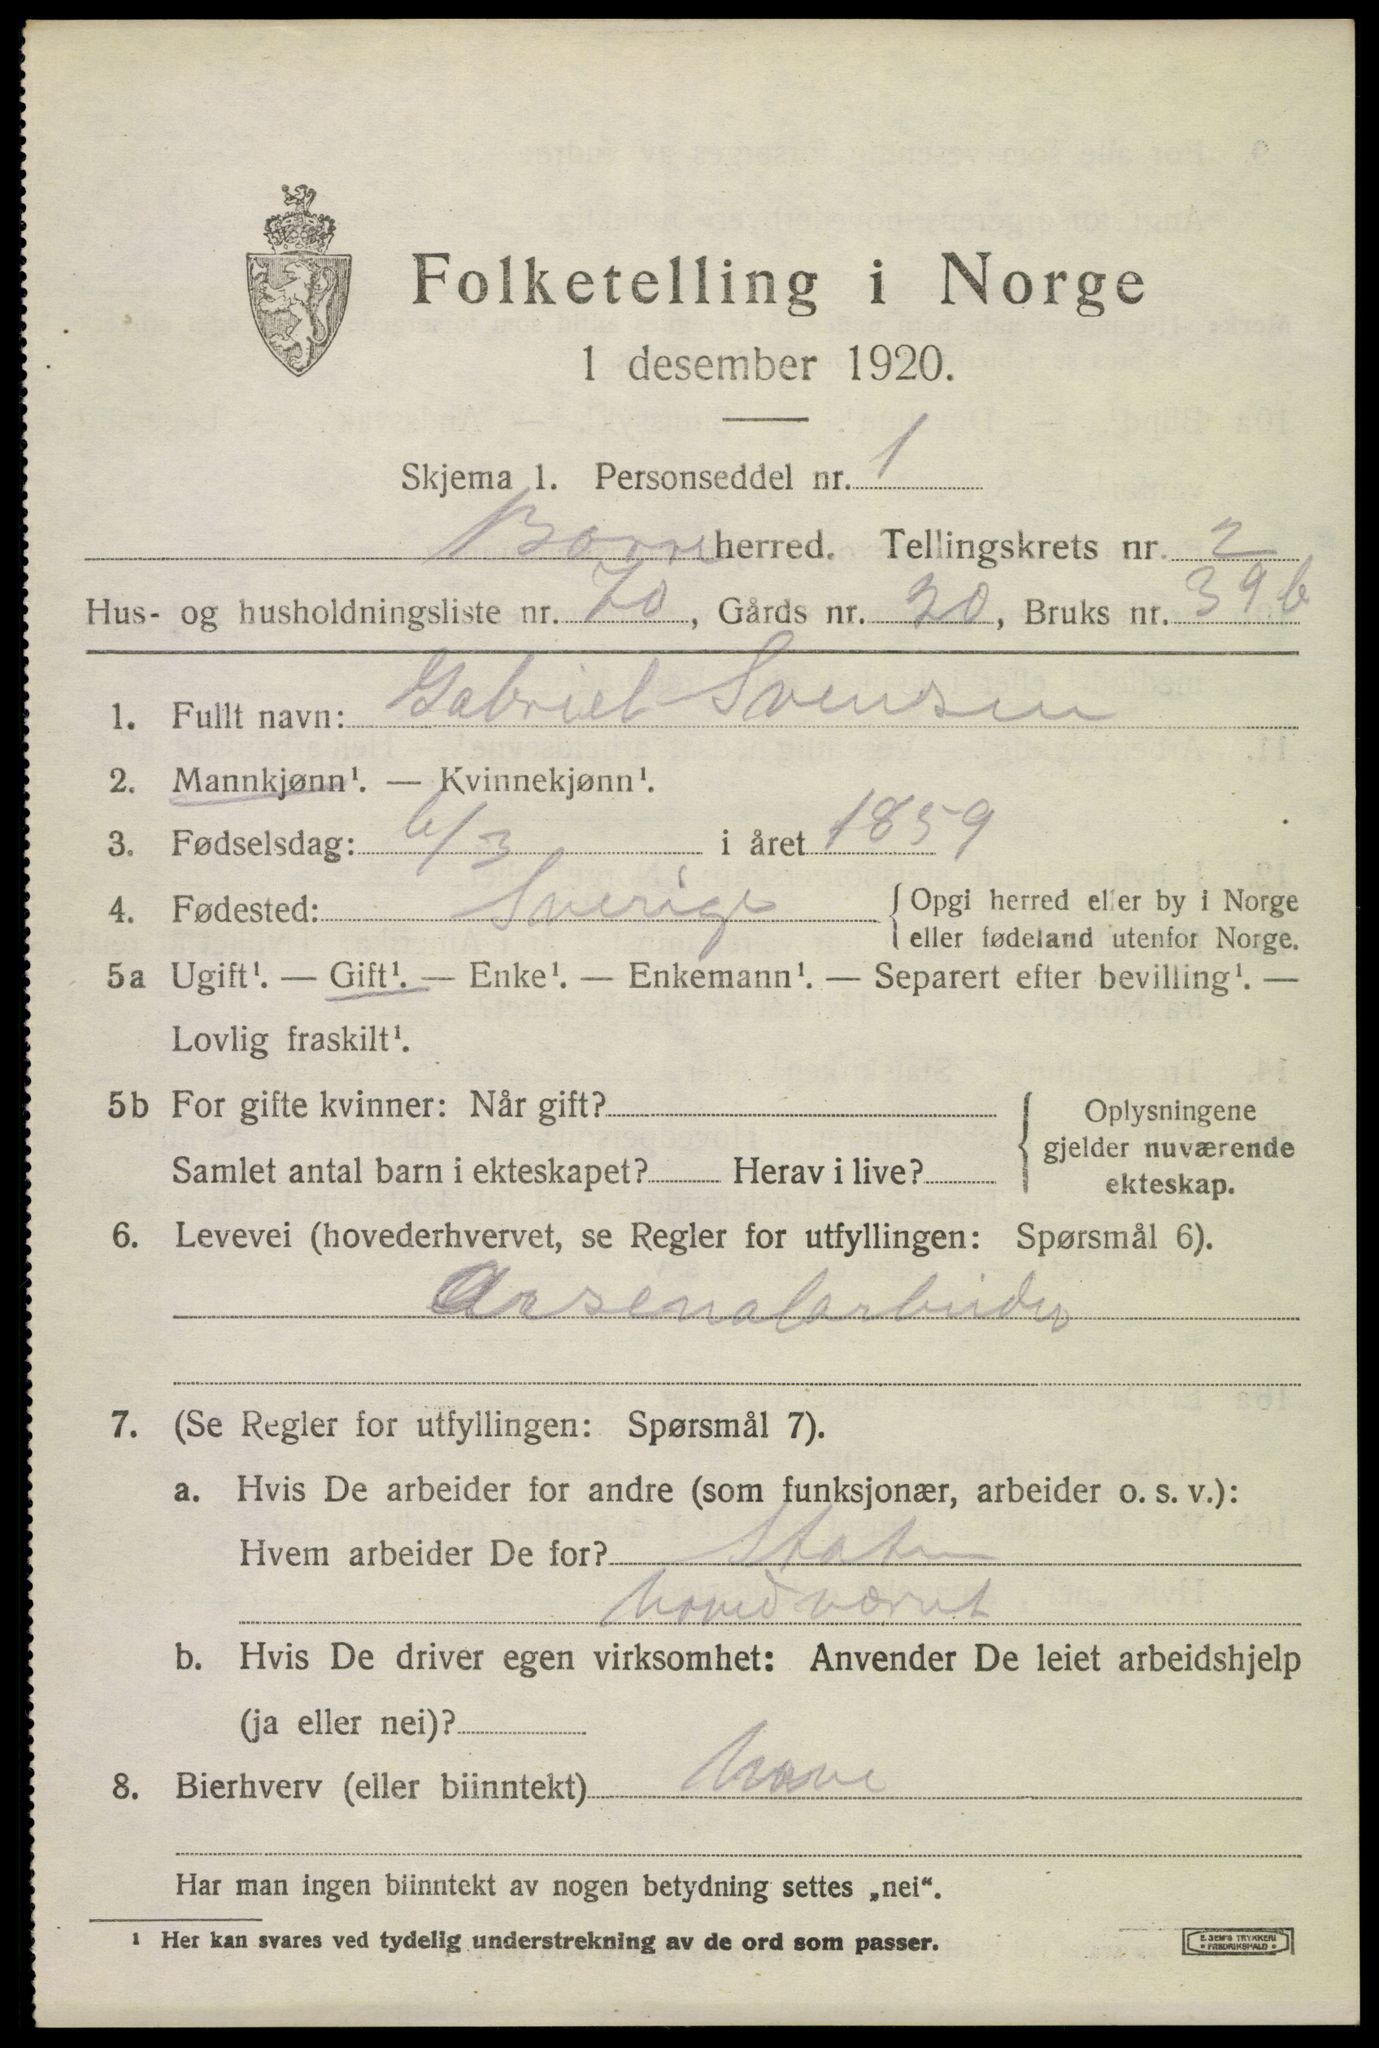 Folketelling i Norge
1 desember 1920.
Skjema 1. Personseddel nr. 1
Borre herred. Tellingskrets nr. 2
Hus- og husholdningsliste nr. 70, Gårds nr. 20, Bruks nr. 39b
1. Fullt navn: Gabriel Svensen
2. Mannkjønn¹. — Kvinnekjønn¹.
3. Fødselsdag: 6/3 i året 1859
4. Fødested: Sverige {Opgi herred eller by i Norge
eller fødeland utenfor Norge.
5a Ugift¹. — Gift¹. — Enke¹. — Enkemann¹. — Separert efter bevilling¹. —
Lovlig fraskilt¹.
5b For gifte kvinner: Når gift? { Oplysningene
gjelder nuværende
Samlet antal barn i ekteskapet? Herav i live? ekteskap.
6. Levevei (hovederhvervet, se Regler for utfyllingen: Spørsmål 6).
Arsenalarbeider
7. (Se Regler for utfyllingen: Spørsmål 7).
a. Hvis De arbeider for andre (som funksjonær, arbeider o. s. v.):
Hvem arbeider De for? Staten
hovedværvet
b. Hvis De driver egen virksomhet: Anvender De leiet arbeidshjelp
(ja eller nei)?
8. Bierhverv (eller biinntekt)
Har man ingen biinntekt av nogen betydning settes „nei“.
¹ Her kan svares ved tydelig understrekning av de ord som passer.
E. SEM'S TRYKKERI
FREDRIKSHALD